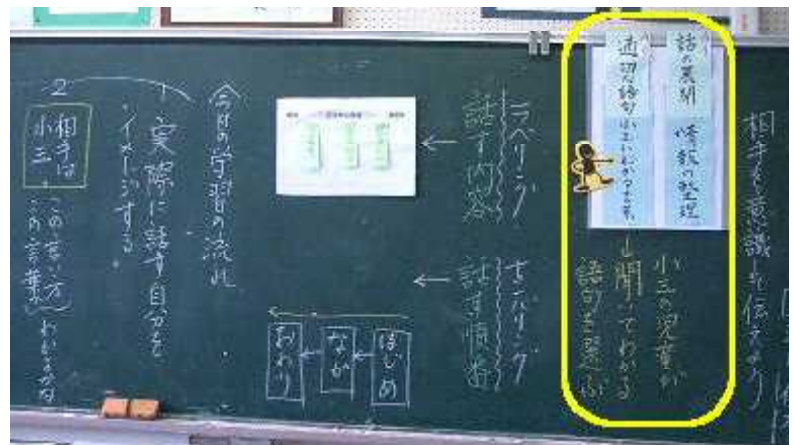 相手を意識し伝えよう
話の展開 情報の整理
適切な語句
小三の児童が
聞いてわかる
語句を選ぶ
ラベリング
話す内容
←
ナンバリング
話す順番
←
はじめ
なか
おわり
今日の学習の流れ
1 実際に話す自分を
イメージする
2 相手は
小三
この言い方
この言葉
わかるかな